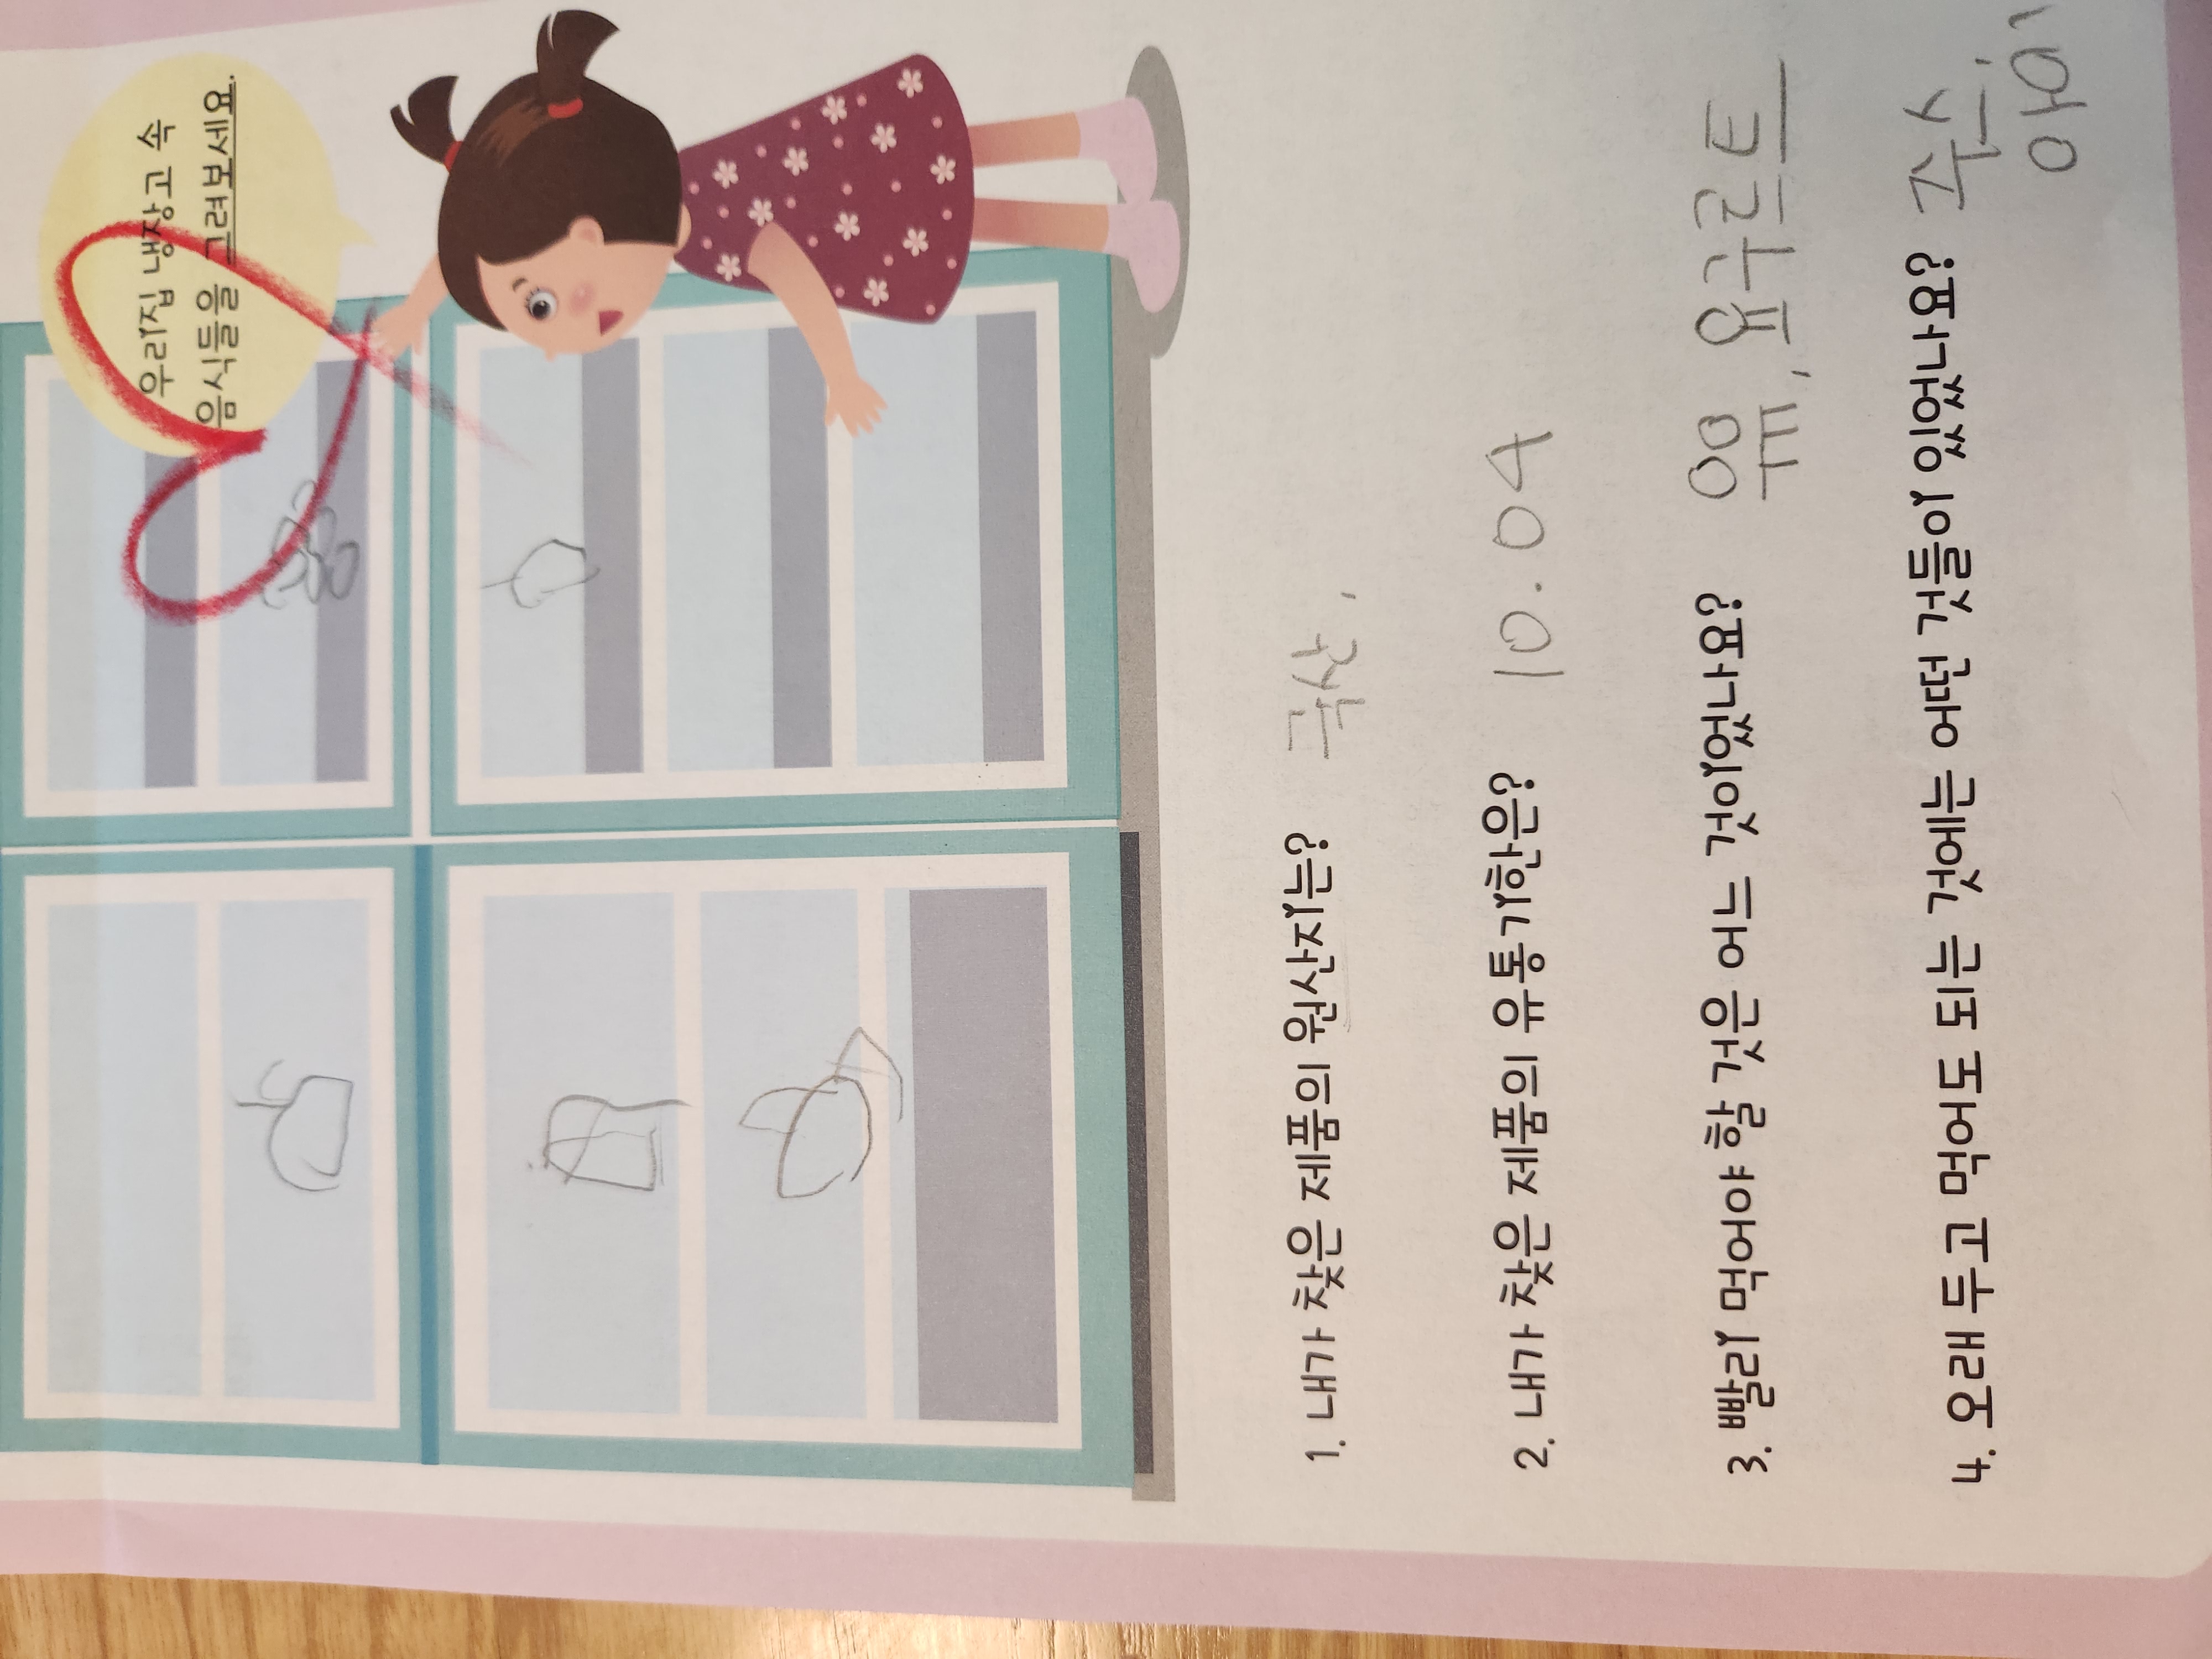 우리집 냉장고 속
음식들을 그려보세요.
1. 내가 찾은 제품의 원산지는?
2. 내가 찾은 제품의 유통기한은? 10.04
3. 빨리 먹어야 할 것은 어느 것이었나요? 우유, 요구르트
4. 오래 두고 먹어도 되는 것에는 어떤 것들이 있었나요?